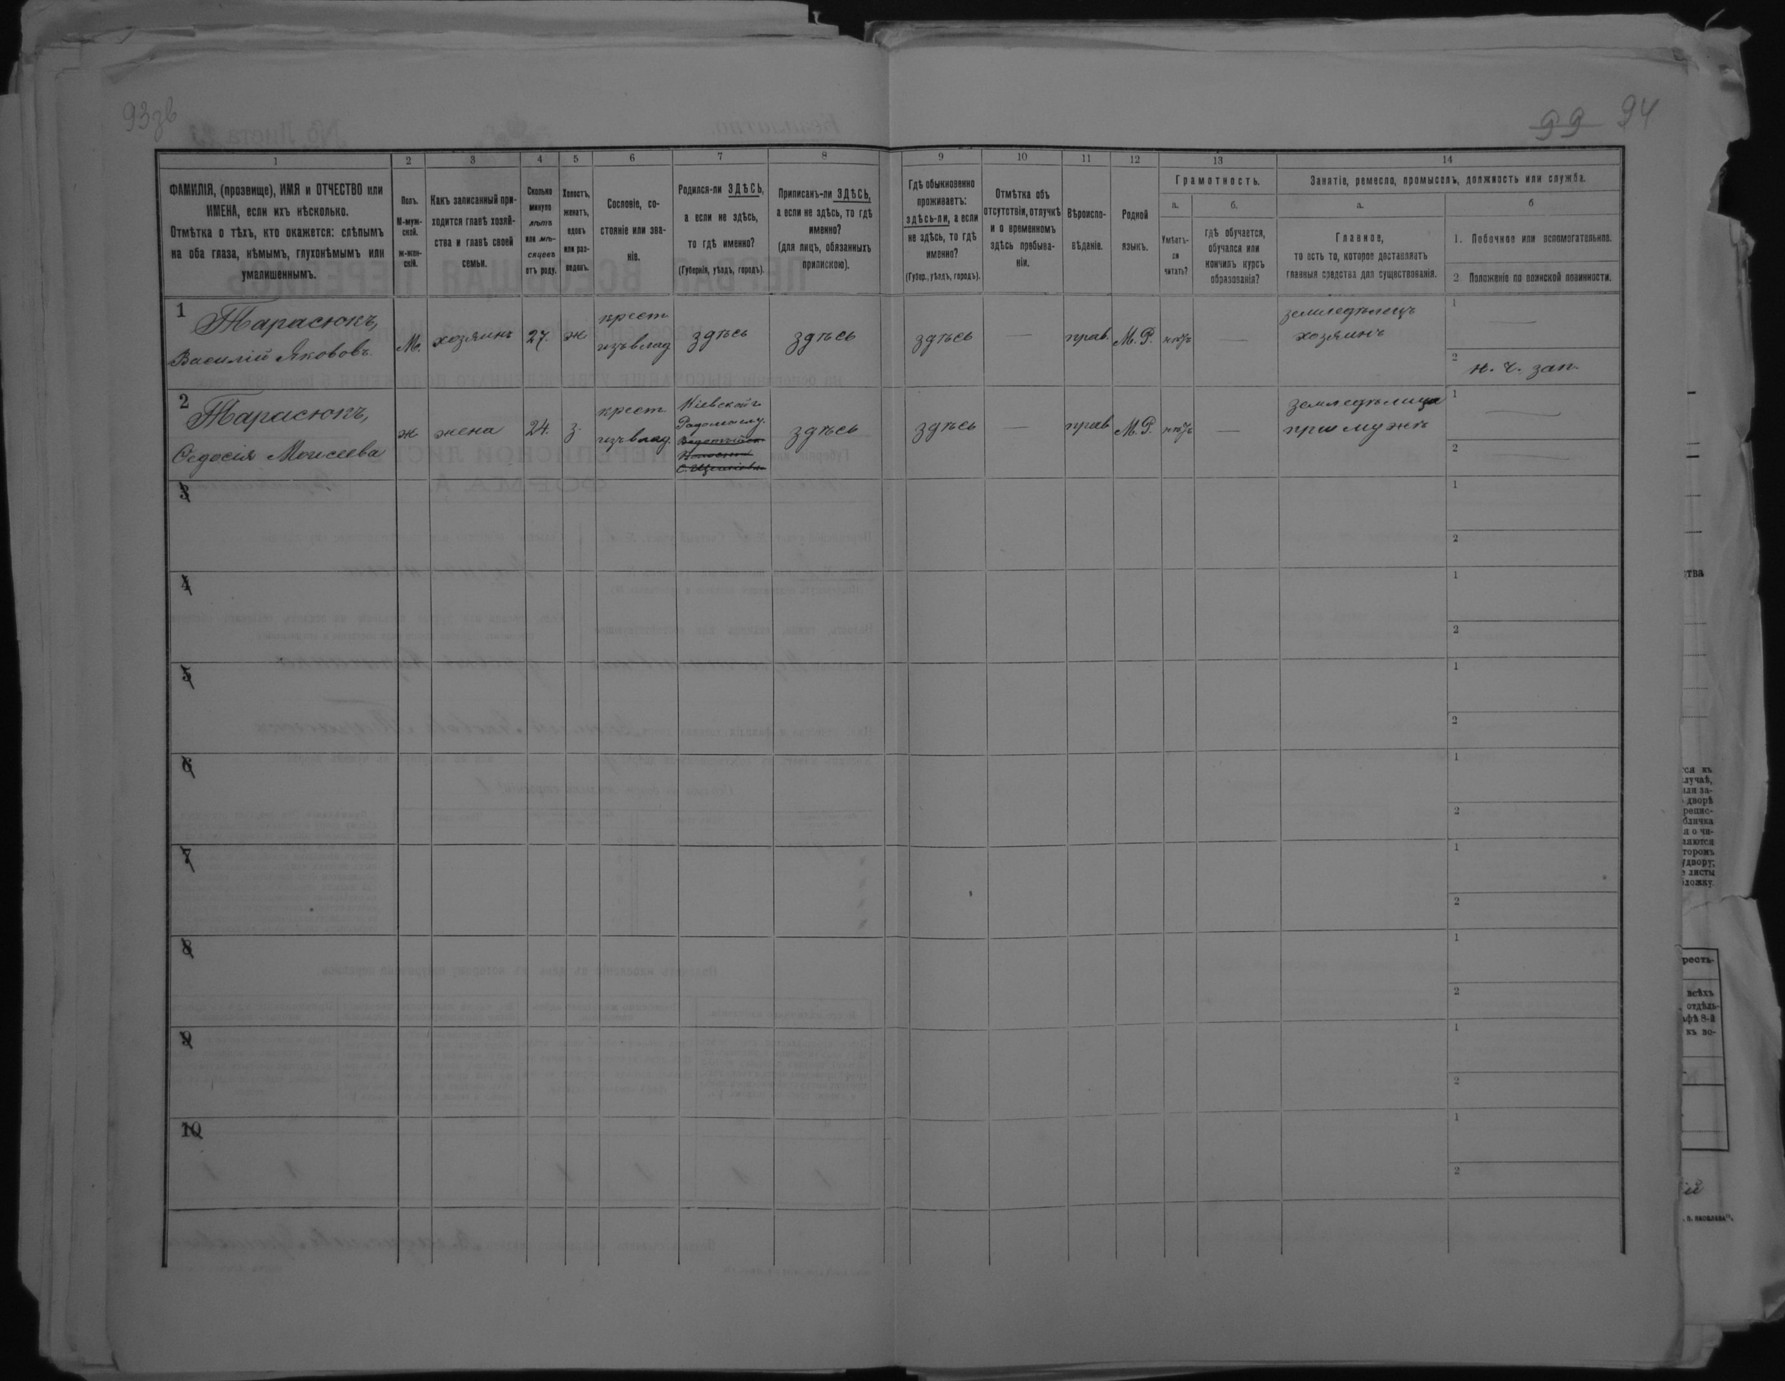 93зв
99 94
1 2 3 4 5 6 7 8 9 10 11 12 13 14
ФАМИЛІЯ, (прозвище), ИМЯ и ОТЧЕСТВО или
ИМЕНА, если ихъ нѣсколько.
Отмѣтка о тѣхъ, кто окажется: слѣпымъ
на оба глаза, нѣмымъ, глухонѣмымъ или
умалишеннымъ.
Полъ.
М-муж-
ской.
ж-жен-
скій.
Какъ записанный при-
ходится главѣ хозяй-
ства и главѣ своей
семьи.
Сколько
минуло
лѣтъ
или мѣ-
сяцевъ
отъ роду.
Холостъ,
женатъ,
вдовъ
или раз-
веденъ.
Сословіе, со-
стояніе или зва-
ніе.
Родился-ли ЗДѢСЬ,
а если не здѣсь,
то гдѣ именно?
(Губернія, уѣздъ, городъ).
Приписанъ-ли ЗДѢСЬ,
а если не здѣсь, то гдѣ
именно?
(для лицъ, обязанныхъ
припискою).
Гдѣ обыкновенно
проживаетъ:
здѣсь-ли, а если
не здѣсь, то гдѣ
именно?
(Губер., уѣздъ, городъ).
Отмѣтка объ
отсутствіи, отлучкѣ
и о временномъ
здѣсь пребыва-
ніи.
Вѣроиспо-
вѣданіе.
Родной
языкъ.
Грамотность.
а.
Умѣетъ-
ли
читать?
б.
гдѣ обучается,
обучался или
кончилъ курсъ
образованія?
Занятіе, ремесло, промыселъ, должность или служба.
а.
Главное,
то есть то, которое доставляетъ
главныя средства для существованія.
б
1. Побочное или вспомогательное.
2 Положеніе по воинской повинности.
1
Тарасюкъ,
Василій Яковов.
М.
хозяинъ
27.
ж
крест.
изъ влад
здѣсь
здѣсь
здѣсь
—
прав.
М.Р.
нѣтъ
—
земледѣлецъ
хозяинъ
1 —
2 н. ч. зап.
2
Тарасюкъ,
Ѳедосія Моисеева
ж
жена
24.
з.
крест.
изъ влад.
Кіевской г.
Радомысл. у.
здѣсь
здѣсь
—
прав
М.Р.
нѣтъ
—
земледѣлица
при мужѣ
1 —
2 —
3
1
2
4
1
2
5
1
2
6
1
2
7
1
2
8
1
2
9
1
2
10
1
2